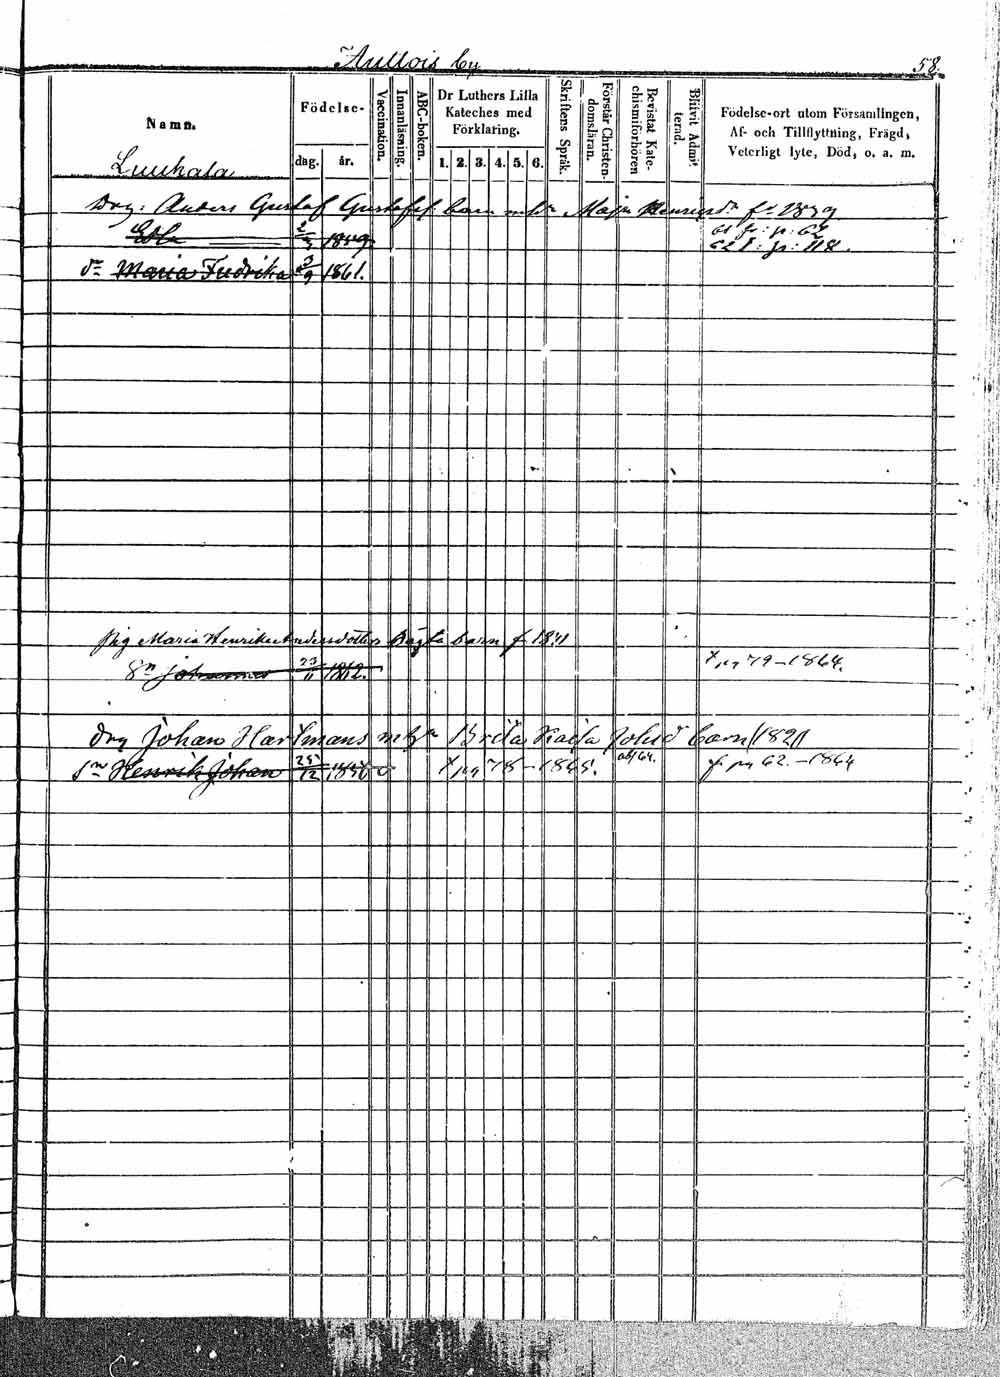 Aullois by
58.
Namn.
Födelse-
dag.
år.
Vaccination.
Innanläsning.
ABC-boken.
Dr Luthers Lilla
Kateches med
Förklaring.
1. 2. 3. 4. 5. 6.
Skriftens Språk.
Förstår Christen-
domsläran.
Bevistat Kate-
chismiförhören
Blifvit Admit-
terad.
Födelse-ort utom Församlingen,
Af- och Tillflyttning, Frägd,
Veterligt lyte, Död, o. a. m.
Luuhala
Drg: Anders Gustaf Gustafss. barn m. h. Maja Henriksdr f. 1839
1859
61 f: p: 62
62 f: p: 118.
dr Maria Fredrika 3/9 1861.
pig Maria Henrika Andersdotters oägta barn f 1841
Sn Johannes 23/11 1862.
† pg 79 – 1864.
drg Johan Hartmans m h Brita Kaisa Johsd barn (1821)
sn Henrik Johan 25/12 1856
† pg 78 – 1865.
f. pg 62. – 1864